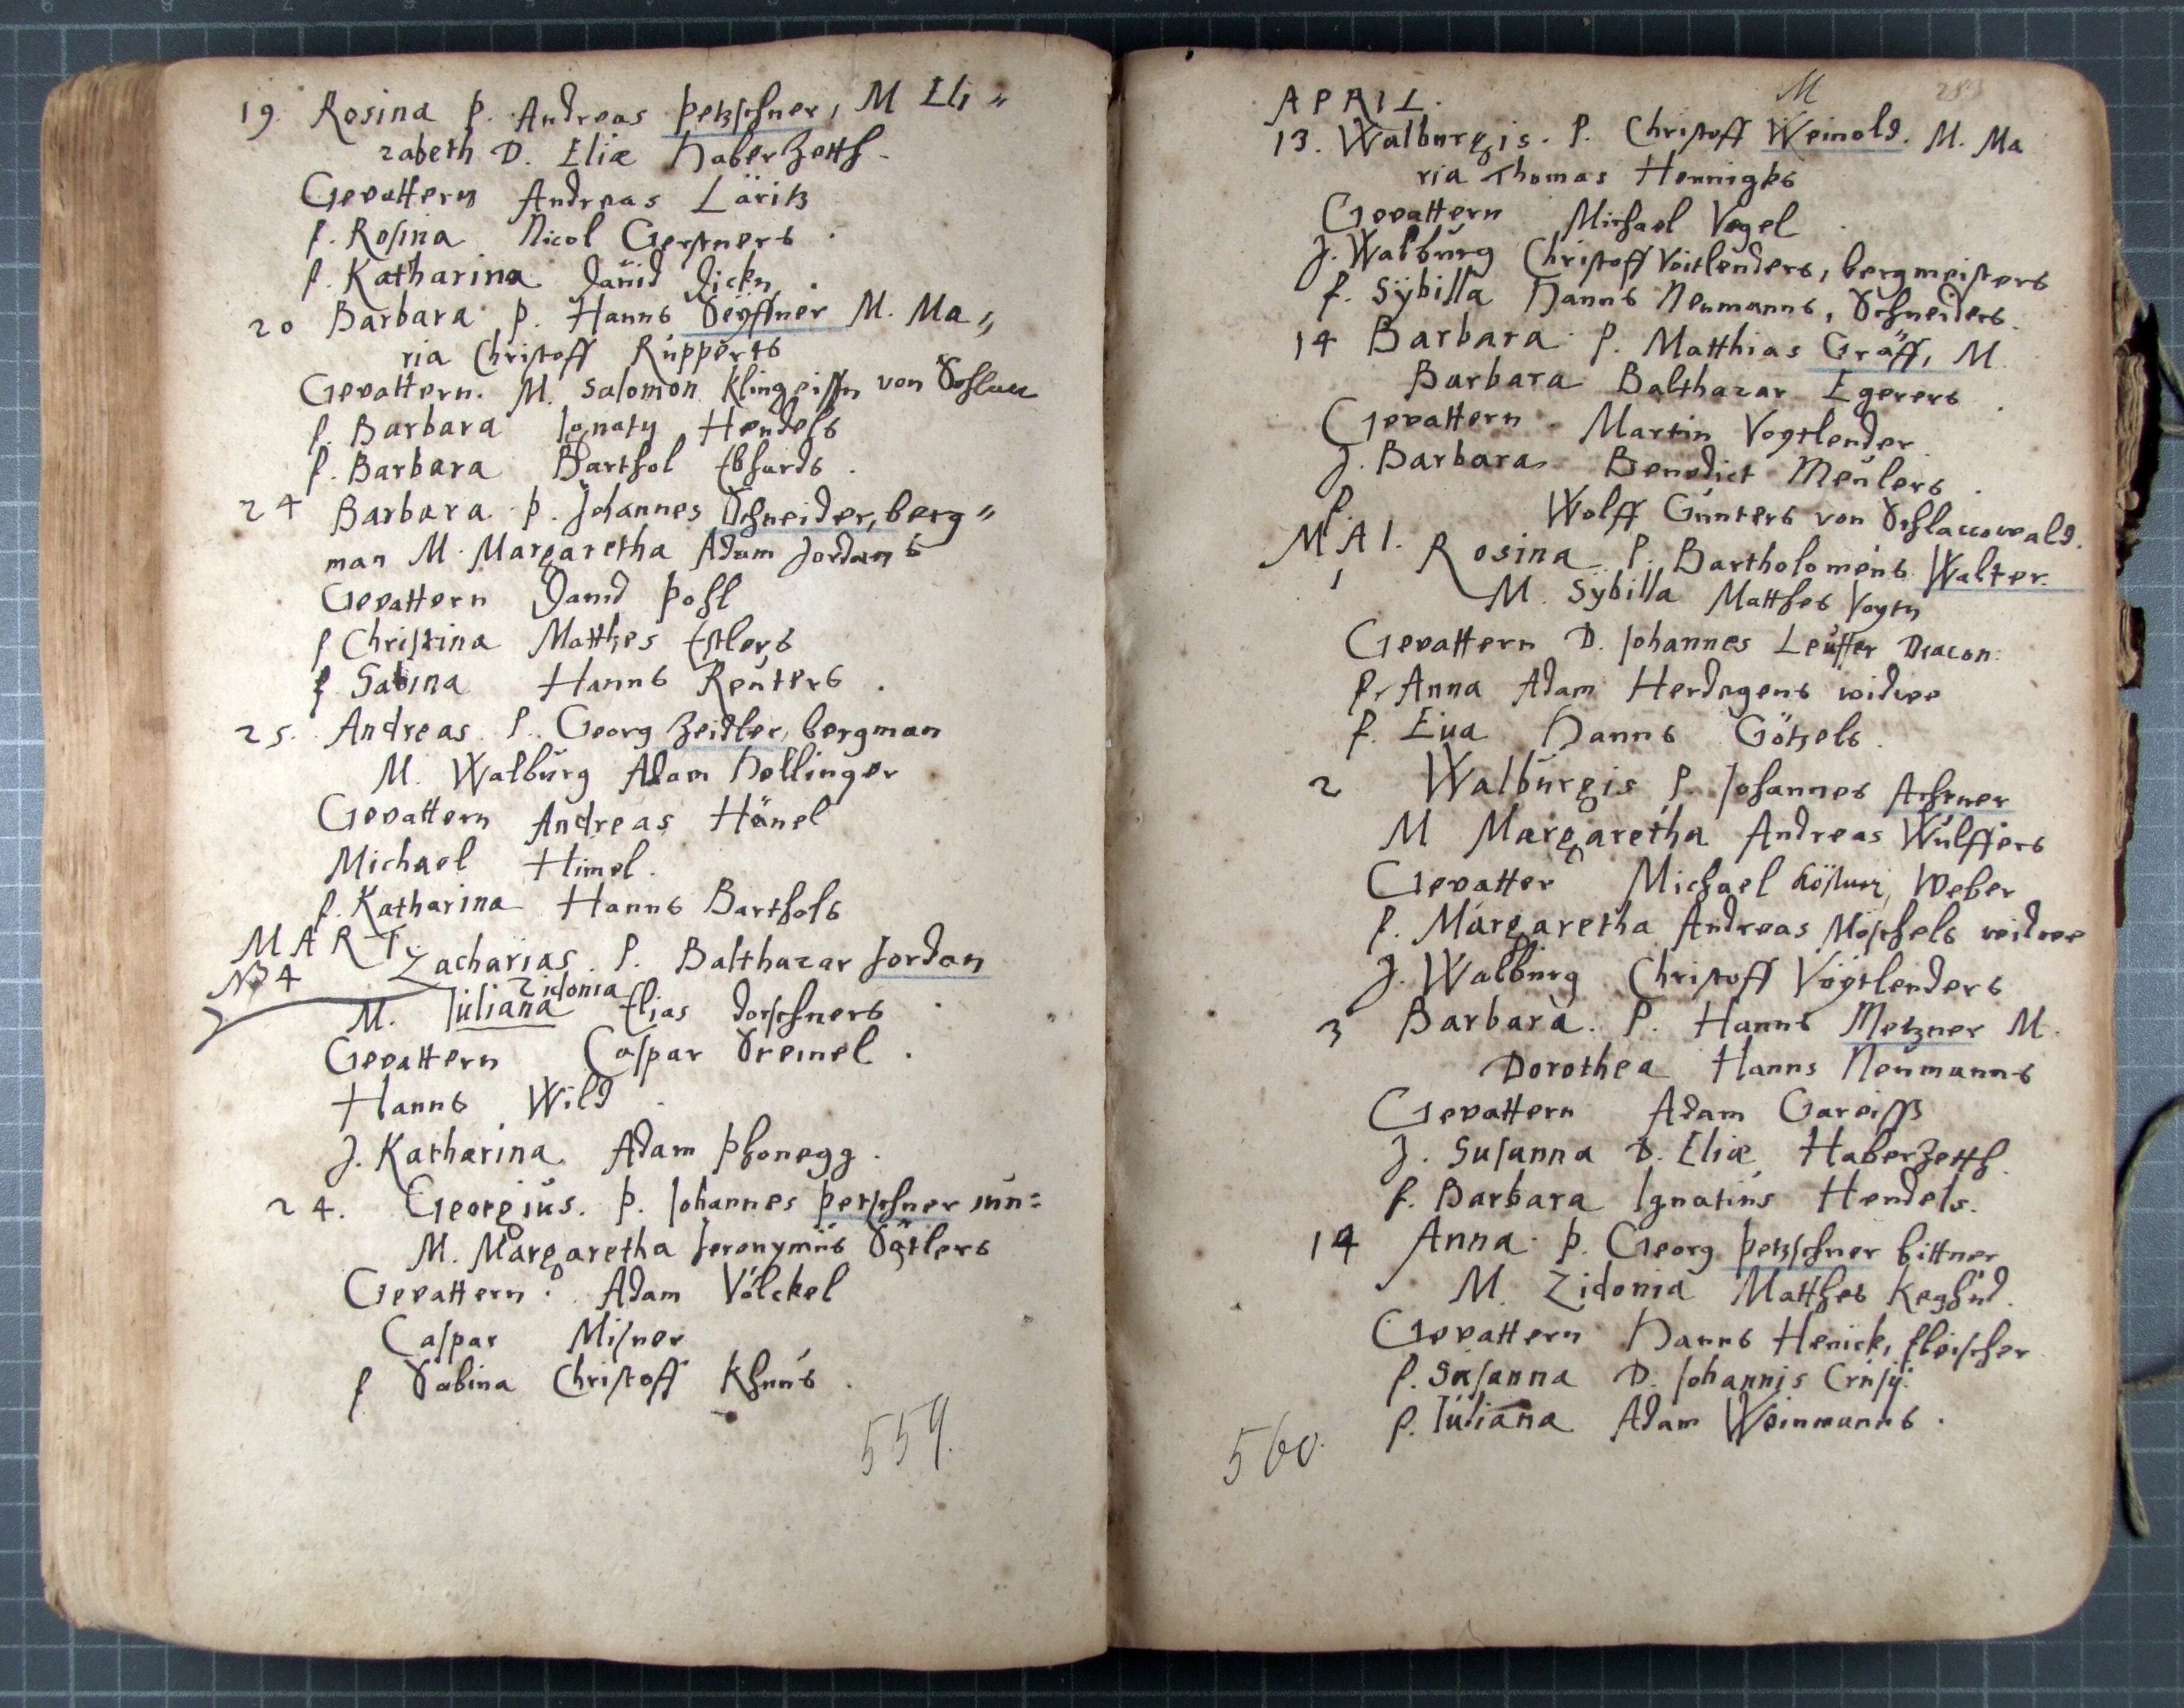 19. Rosina P. Andreas Petzschner, M Eli„
zabeth D. Eliæ Haberzetth.
Gevattern Andreas Löritz
f. Rosina Nicol Gerstners.
f. Katharina David
20 Barbara P. Hanns Seyffner M. Ma„
ria Christoff Rupperts
Gevattern. M. Salomon von
f. Barbara Ignaty Hendels
f. Barbara Barthol Ebhards.
24 Barbara P. Johannes Schneider, berg„
man M. Margaretha Adam Jordans
Gevattern David Pohl
f Christina Matthes Estlers
f. Sabina Hanns Reuters.
25. Andreas. P. Georg Zeidler, bergman
M. Walburg Adam Hollinger
Gevattern Andreas Hänel
Michael Himel.
f. Katharina Hanns Barthols
MARTY
Zacharias. P. Balthazar Jordan
NB 4
Zidonia
M. Juliana Elias Dorschners.
Gevattern Caspar Steinel.
Hanns Wild.
J. Katharina Adam Phonegg.
24. Georgius. P. Johannes Petschner iun:
M. Margaretha Jeronymus Satlers
Gevattern. Adam Völckel
Caspar Misner
f Sabina Christoff Khuns.
559.
M
APRIL.
13. Walburgis. P. Christoff Weinold. M. Ma
ria Thomas Hennigks
Gevattern Michael Vogel.
J. Walburg Christoff Voitlenders, bergmeisters
f. Sybilla Hanns Neumanns, Schneiders.
14 Barbara P. Matthias Gräff, M.
Barbara Balthazar Egerers.
Gevattern. Martin Vogtlender
J. Barbara Benedict Meulers.
f. Wolff Gunters von Schlaccowald.
MAI. Rosina P. Bartholomeus Walter.
1 M. Sybilla Matthes Vogtn
Gevattern D. Johannes Leuffer Diacon.
f. Anna Adam Herdegens widwe
f. Eua Hanns Götzels.
2 Walburgis P. Johannes
M Margaretha Andreas Wulffers
Gevatter Michael Weber
f. Margaretha Andreas Möschels widwe
J. Walburg Christoff Vogtlenders
3 Barbara. P. Hanns Metzner M.
Dorothea Hanns Neumanns
Gevattern Adam Gareiss
J. Susanna D. Eliæ Haberzetth.
f. Barbara Ignatius Hendels.
14 Anna P. Georg Petzschner bittner
M. Zidonia Matthes
Gevattern Hanns Henick, fleischer
f. Susanna D. Johannis Crusij.
f. Juliana Adam Weinmanns.
560.